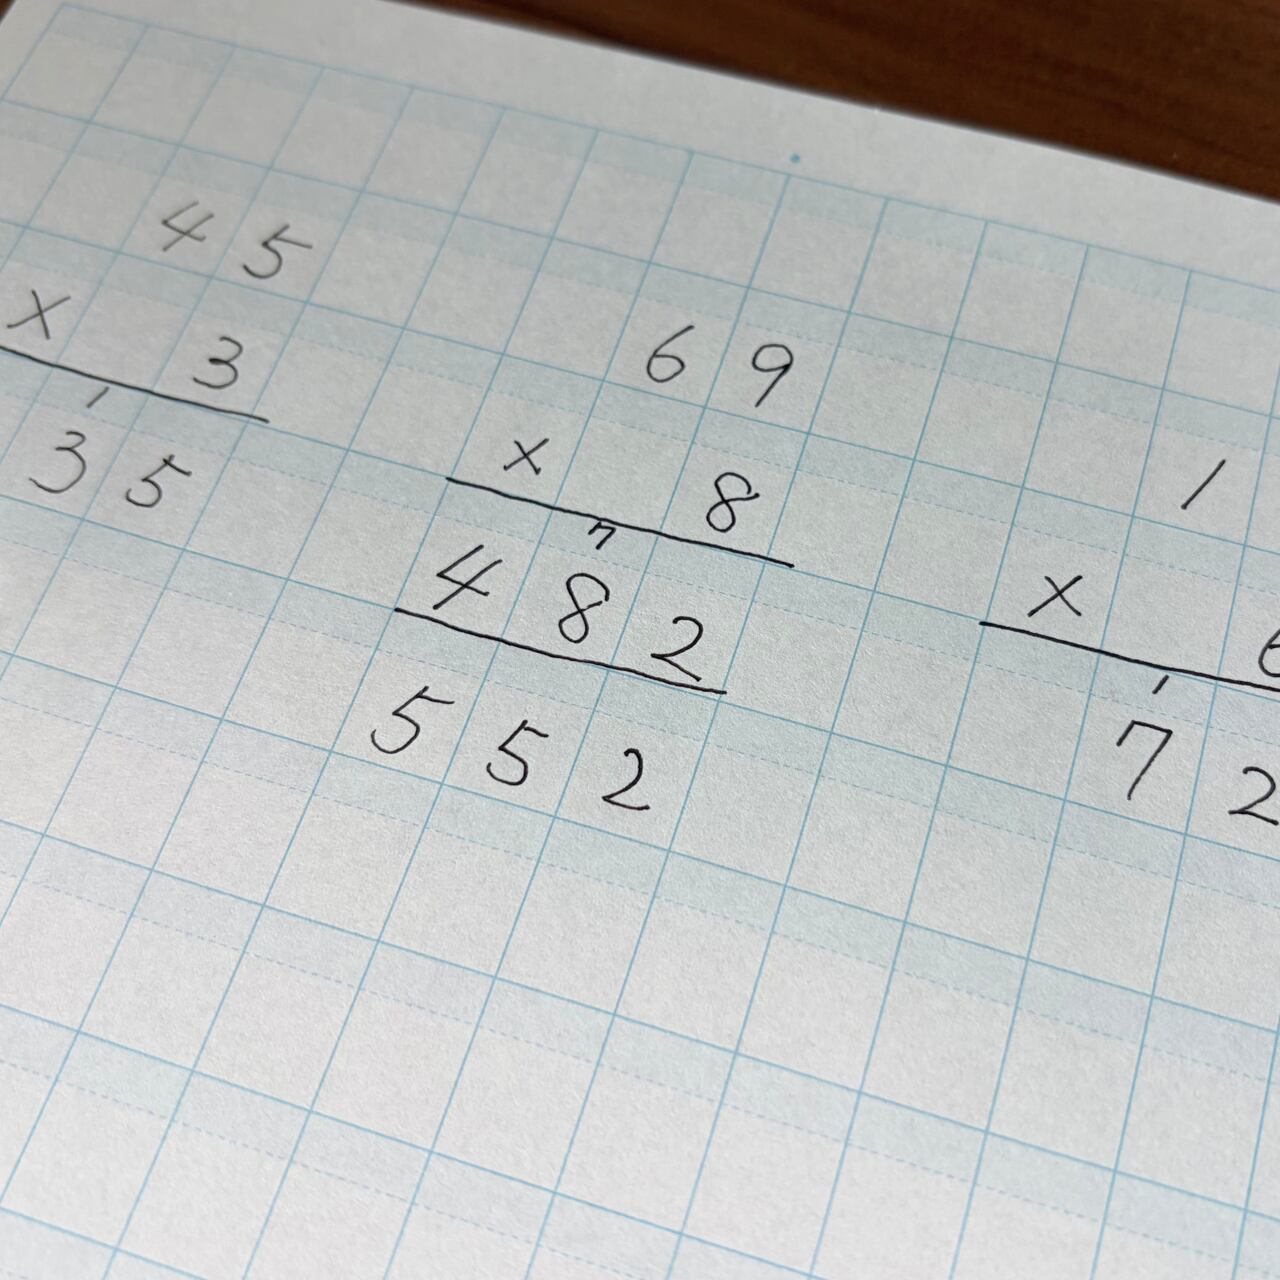 45
× 3
1
35
69
× 8
7
482
552
1
×
1
72